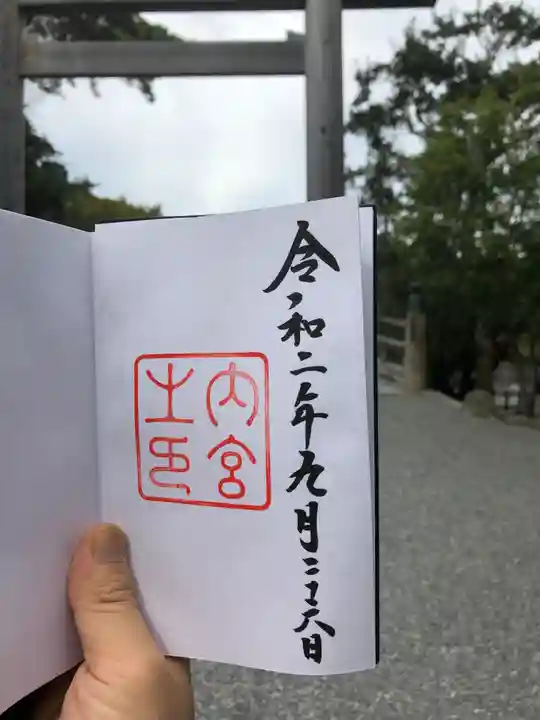 令和二年九月二十六日
内宮
之印